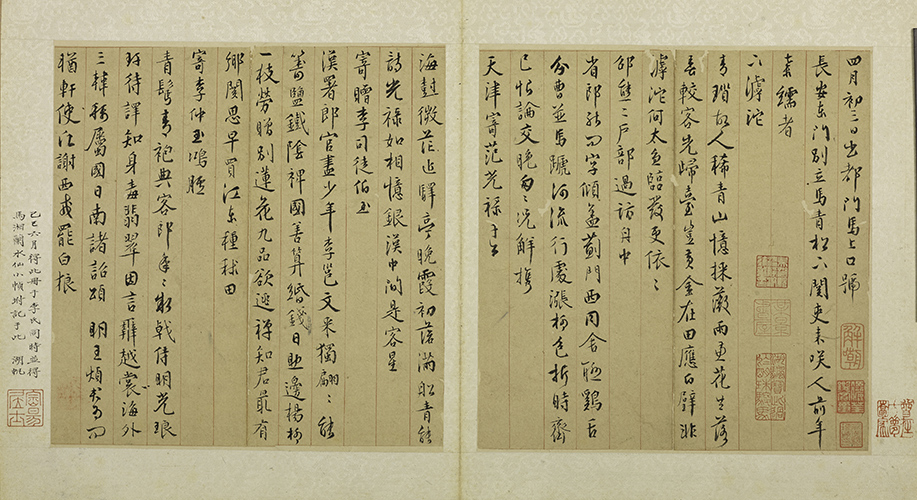 四月初三日出都門馬上口號
長安東門別立馬青松下關吏未咲人前年
棄繻者
下滹沱
青瑣故人稀青山憶採薇雨兼花共落
春較客先歸臺豈黃金在田應白璧非
滹沱河太急臨發更依〻
邱熊二戶部過訪舟中
省郎能問字傾蓋薊門西同舍聽鷄舌
分曹並馬蹏河流行處漲柳色折時齊
已恨論交晚匆〻況解攜
天津寄范光祿于公
海樹微茫近驛亭晚霞初落滿船青能
詩光祿如相憶銀漢中間是客星
寄贈李司徒伯玉
漢署郎官盡少年李邕文采獨翩〻能
籌鹽鐵陰裨國善算緡錢日助邊楊柳
一枝勞贈別蓮花九品欲逃禪知君最有
鄉關思早買江東種秫田
寄李仲玉鴻臚
青髩青袍典客郎年〻執戟侍明光琅
玕待譯知身毒翡翠因言辨越裳海外
三韓稱屬國日南諸詔頌明王煩君為問
猶軒使江謝西戎罷白狼
己巳六月得此冊于李氏同時並得
馬湘蘭水仙小幀附記于此 湖帆